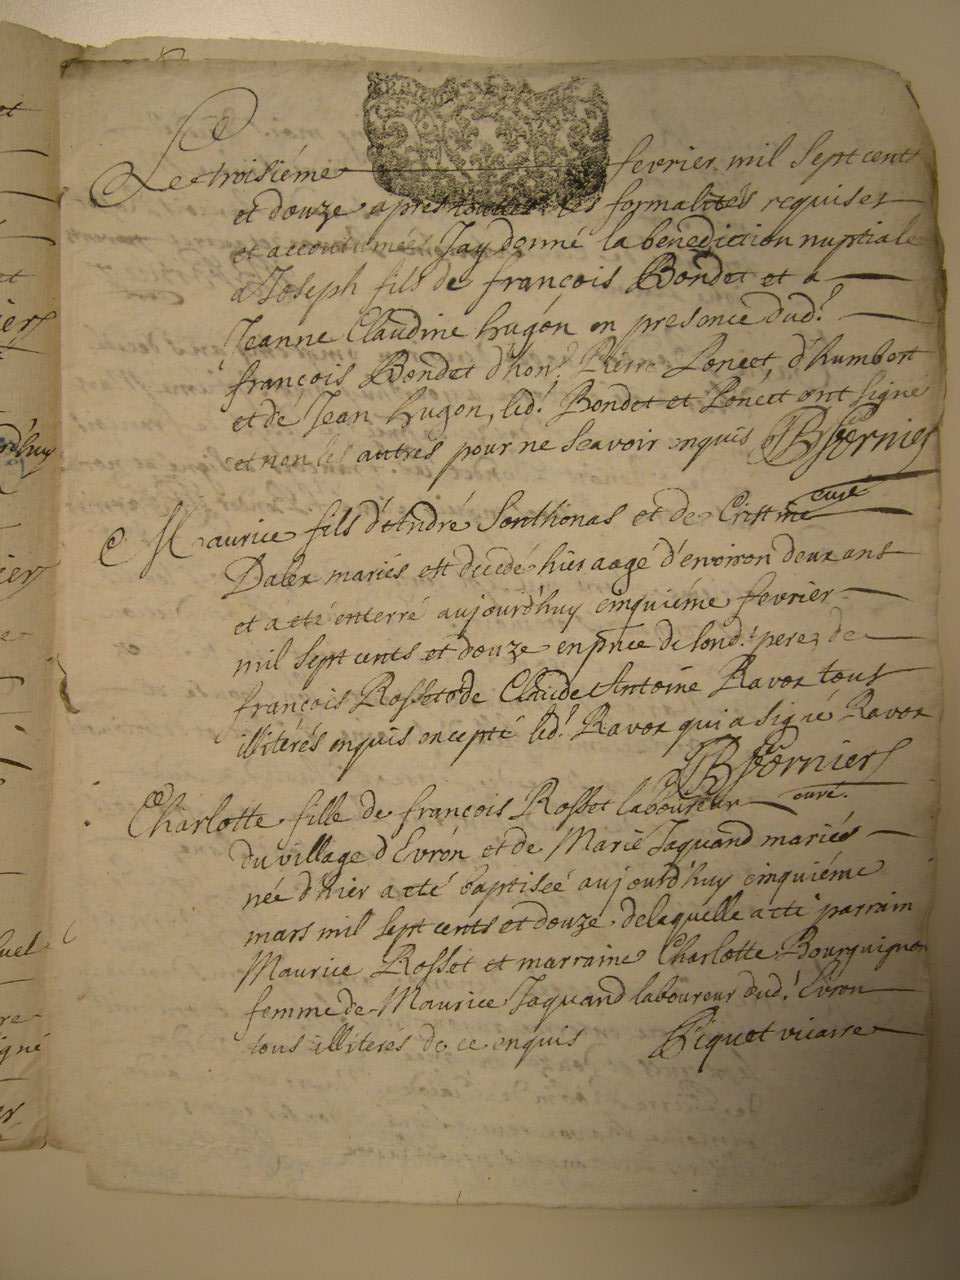 Le troisiéme fevrier mil sept cents
et douze apres toutes les formalités requises
et accoutumées Jay donné la benediction nuptiale
a Joseph fils de françois Bondet et a
Jeanne Claudine hugon en presence dud.t
françois Bondet d'hon. Pierre Poncet, d'humbert
et de Jean hugon, led.t Bondet et Poncet ont signé
et non les autres pour ne scavoir enquis JB fornier
curé
Maurice fils d'André Sonthonas et de
Daler mariés est decedé hier aagé d'environ deux ans
et a eté enterré aujourd'huy cinquiéme fevrier
mil sept cents et douze en pnce de sond.t pere, de
françois Rosset de Claude Antoine Ravoz tous
illiterés enquis excepté led.t Ravoz qui a signé Ravoz
JB fornier
curé
Charlotte fille de françois Rosset laboureur
du village d'Evron et de Marie Jaquand mariés
née d'hier a eté baptisée aujourd'huy cinquiéme
mars mil sept cents et douze de laquelle a eté parrain
Maurice Rosset et marraine Charlotte Bourguignon
femme de Maurice Jaquand laboureur dud.t Evron
tous illiterés de ce enquis Biquet vicaire